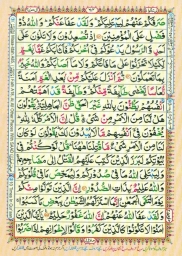 صَرَفَكُمْ عَنْهُمْ لِيَبْتَلِيَكُمْ وَلَقَدْ عَفَا عَنْكُمْ وَاللّٰهُ ذُوْ
فَضْلٍ عَلَى الْمُؤْمِنِيْنَ اِذْ تُصْعِدُوْنَ وَلَا تَلْوٗنَ عَلٰٓى
اَحَدٍ وَّالرَّسُوْلُ يَدْعُوْكُمْ فِيْٓ اُخْرٰىكُمْ فَاَثَابَكُمْ غَمًّۢا بِغَمٍّ
لِّكَيْلَا تَحْزَنُوْا عَلٰى مَا فَاتَكُمْ وَلَا مَآ اَصَابَكُمْ وَاللّٰهُ
خَبِيْرٌۢ بِمَا تَعْمَلُوْنَ ثُمَّ اَنْزَلَ عَلَيْكُمْ مِّنْۢ بَعْدِ الْغَمِّ اَمَنَةً
نُّعَاسًا يَّغْشٰى طَآئِفَةً مِّنْكُمْ وَطَآئِفَةٌ قَدْ اَهَمَّتْهُمْ
اَنْفُسُهُمْ يَظُنُّوْنَ بِاللّٰهِ غَيْرَ الْحَقِّ ظَنَّ الْجَاهِلِيَّةِ يَقُوْلُوْنَ
هَلْ لَّنَا مِنَ الْاَمْرِ مِنْ شَيْءٍ قُلْ اِنَّ الْاَمْرَ كُلَّهٗ لِلّٰهِ
يُخْفُوْنَ فِيْٓ اَنْفُسِهِمْ مَّا لَا يُبْدُوْنَ لَكَ يَقُوْلُوْنَ لَوْ كَانَ
لَنَا مِنَ الْاَمْرِ شَيْءٌ مَّا قُتِلْنَا هٰهُنَا قُلْ لَّوْ كُنْتُمْ فِيْ
بُيُوْتِكُمْ لَبَرَزَ الَّذِيْنَ كُتِبَ عَلَيْهِمُ الْقَتْلُ اِلٰى مَضَاجِعِهِمْ
وَلِيَبْتَلِيَ اللّٰهُ مَا فِيْ صُدُوْرِكُمْ وَلِيُمَحِّصَ مَا فِيْ قُلُوْبِكُمْ
وَاللّٰهُ عَلِيْمٌۢ بِذَاتِ الصُّدُوْرِ اِنَّ الَّذِيْنَ تَوَلَّوْا مِنْكُمْ
يَوْمَ الْتَقَى الْجَمْعٰنِ اِنَّمَا اسْتَزَلَّهُمُ الشَّيْطٰنُ بِبَعْضِ مَا كَسَبُوْا
وَلَقَدْ عَفَا اللّٰهُ عَنْهُمْ اِنَّ اللّٰهَ غَفُوْرٌ حَلِيْمٌ يٰٓاَيُّهَا الَّذِيْنَ
اٰمَنُوْا لَا تَكُوْنُوْا كَالَّذِيْنَ كَفَرُوْا وَقَالُوْا لِاِخْوَانِهِمْ اِذَا